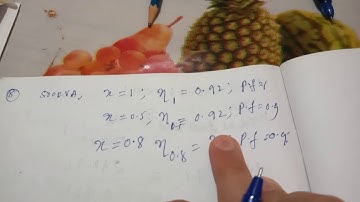 ⑧ 500KVA, x=1; η₁ = 0.92; P.f=1
x=0.5; η₀.₅ = 0.92; P.f=0.9
x=0.8 η₀.₈ = P.f=0.9